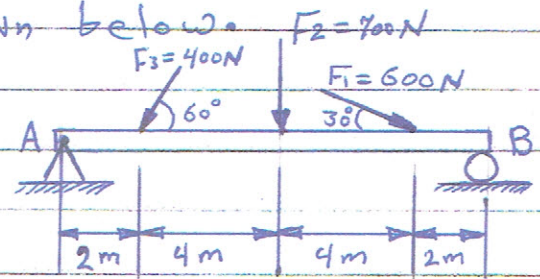 below. F2=700N
F3=400N
F1=600N
60°
30°
A B
2m 4m 4m 2m